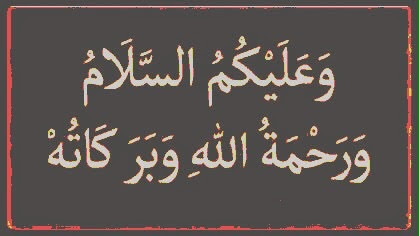 وَعَلَيْكُمُ السَّلَامُ
وَرَحْمَةُ اللهِ وَبَرَ كَاتُهْ